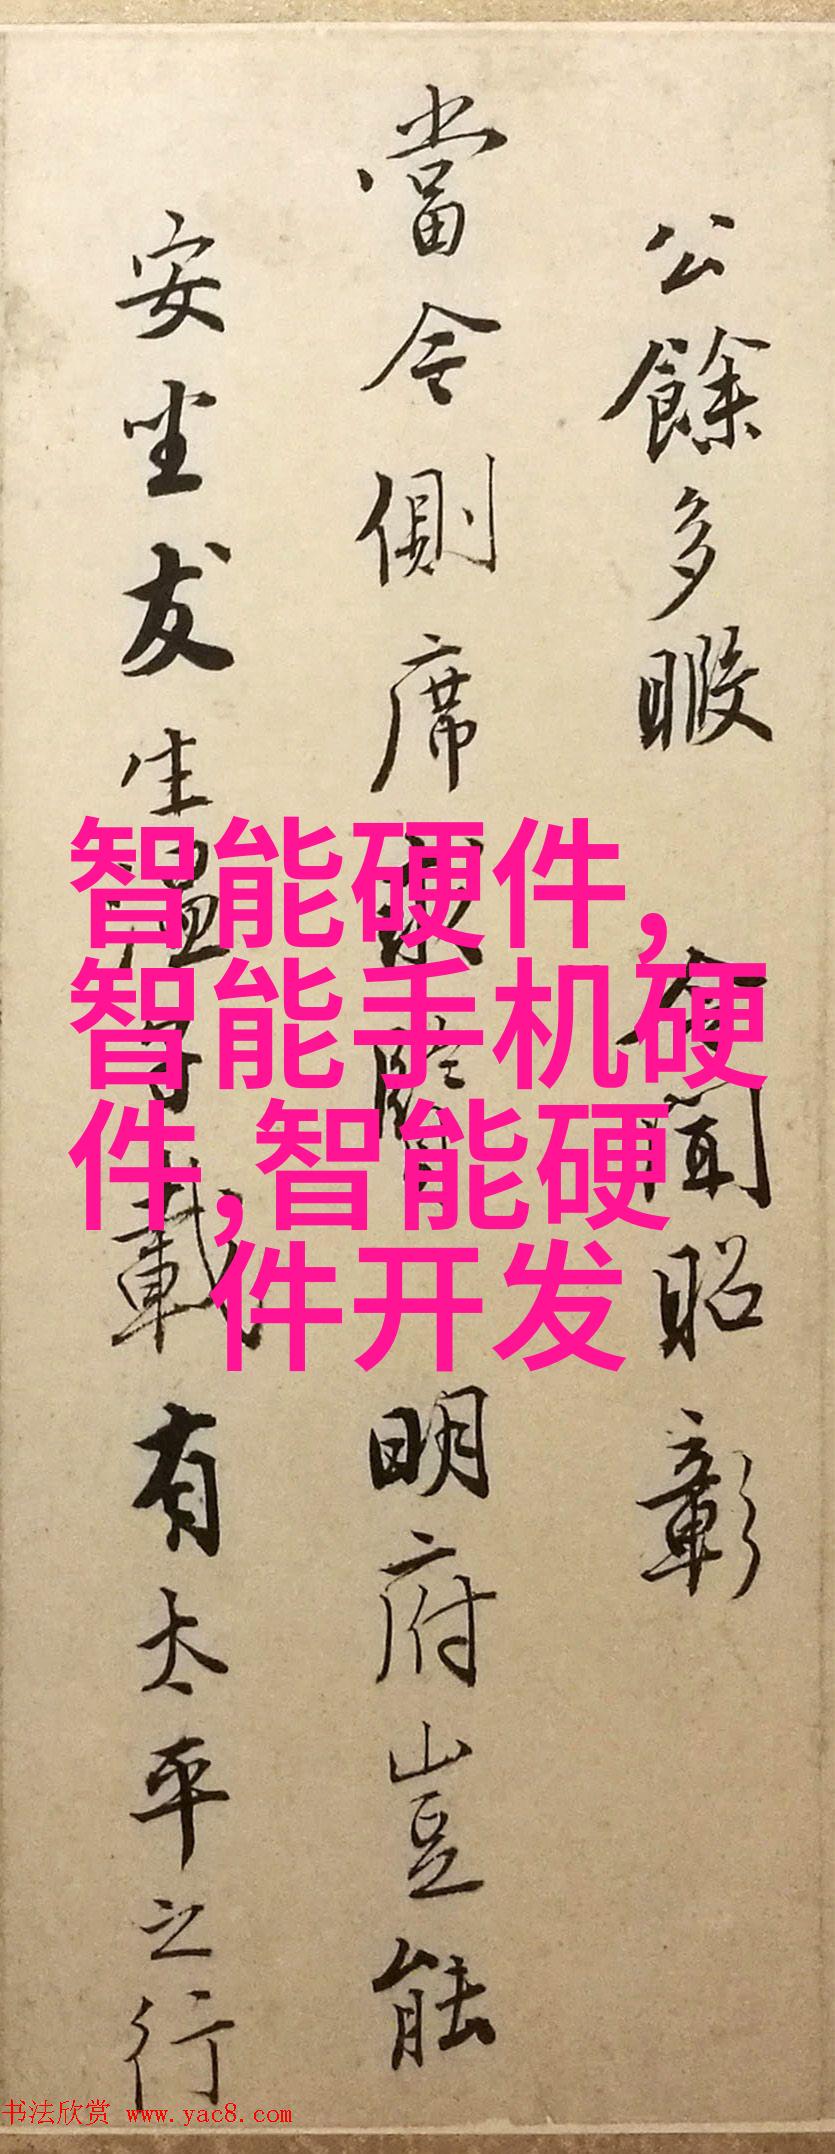 公餘多暇 令聞昭彰
當今側席求賢 明府豈能
安坐友生温存載有太平之行
智能硬件,
智能手机硬
件,智能硬
件开发
书法欣赏 www.yac8.com